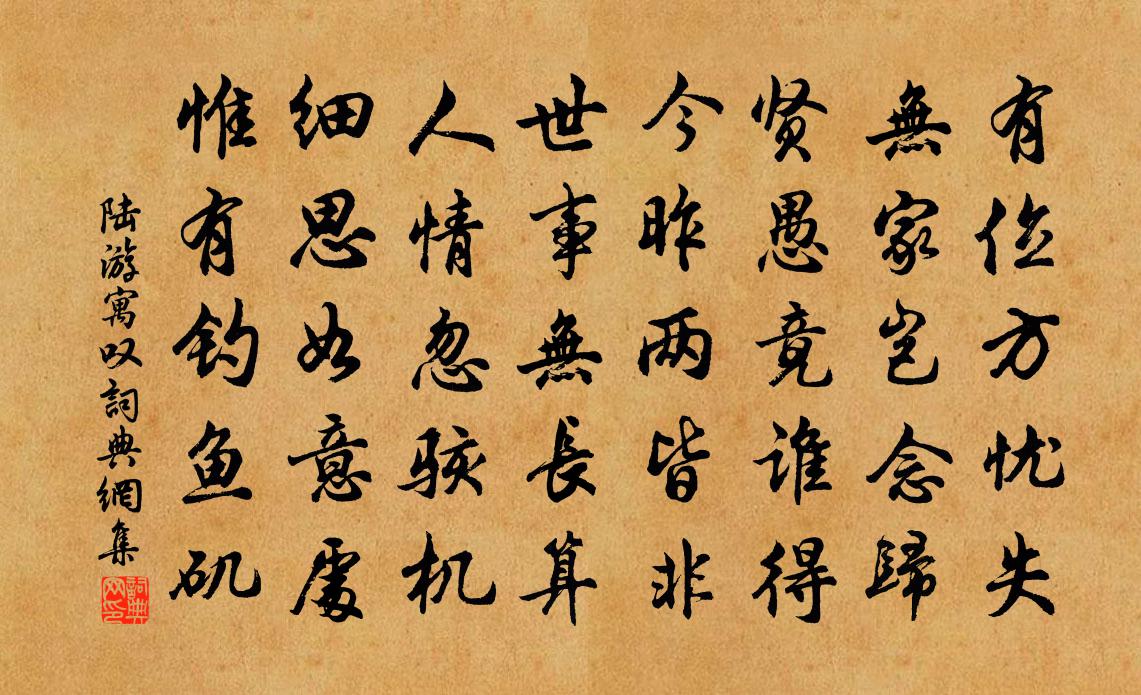 有位方忧失
無家岂念歸
贤愚竟谁得
今昨两皆非
世事無長算
人情忽骇机
细思如意處
惟有钓鱼矶
陆游寓叹詞典網集
詞典网印